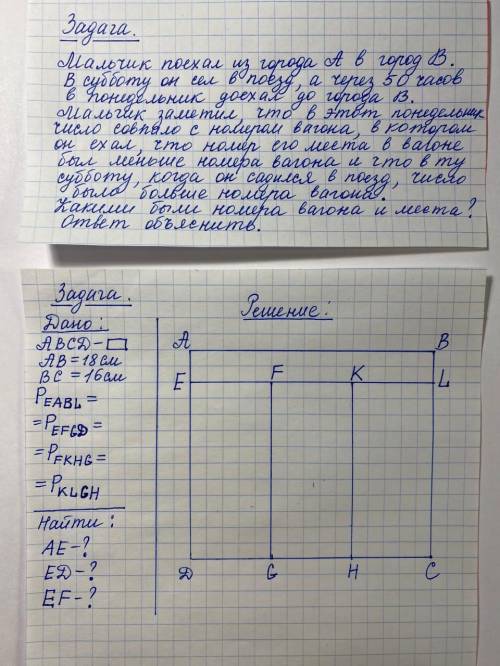 Задага.
Мальчик поехал из города А в город В.
В субботу он сел в поезд, а через 50 часов
в понедельник доехал до города В.
Мальчик заметил, что в этот понедельник
число совпало с номером вагона, в котором
он ехал, что номер его места в вагоне
был меньше номера вагона и что в ту
субботу, когда он садился в поезд, число
было больше номера вагона.
Какими были номера вагона и места?
Ответ объяснить.
Задага.
Дано:
ABCD-▭
AB=18см
BC=16см
PEABL=
=PEFGD=
=PFKHG=
=PKLGH
Найти:
AE-?
ED-?
EF-?
Решение:
A B
E F K L
D G H C